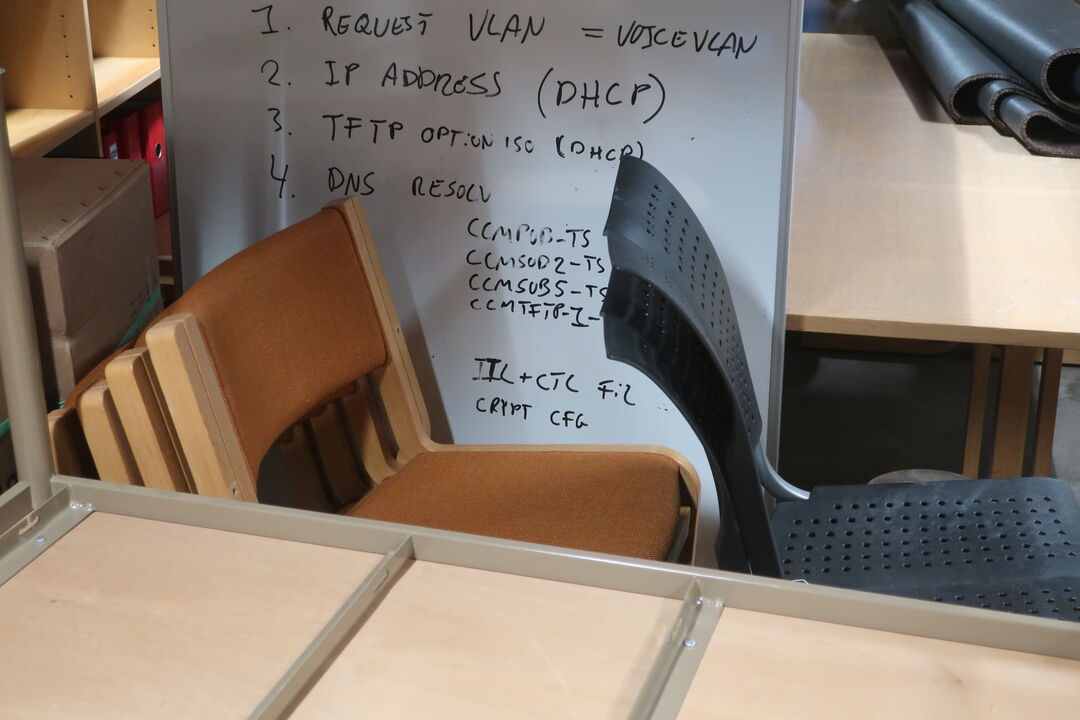 1. REQUEST VLAN = VOICEVLAN
2. IP ADDRESS (DHCP)
3. TFTP OPTION 150 (DHCP)
4. DNS RESOLV
CCMPUB-TS
CCMSUB2-TS
CCMSUB5-TS
CCMTFTP-1-
ITL+CTL FiL
CRYPT CFG